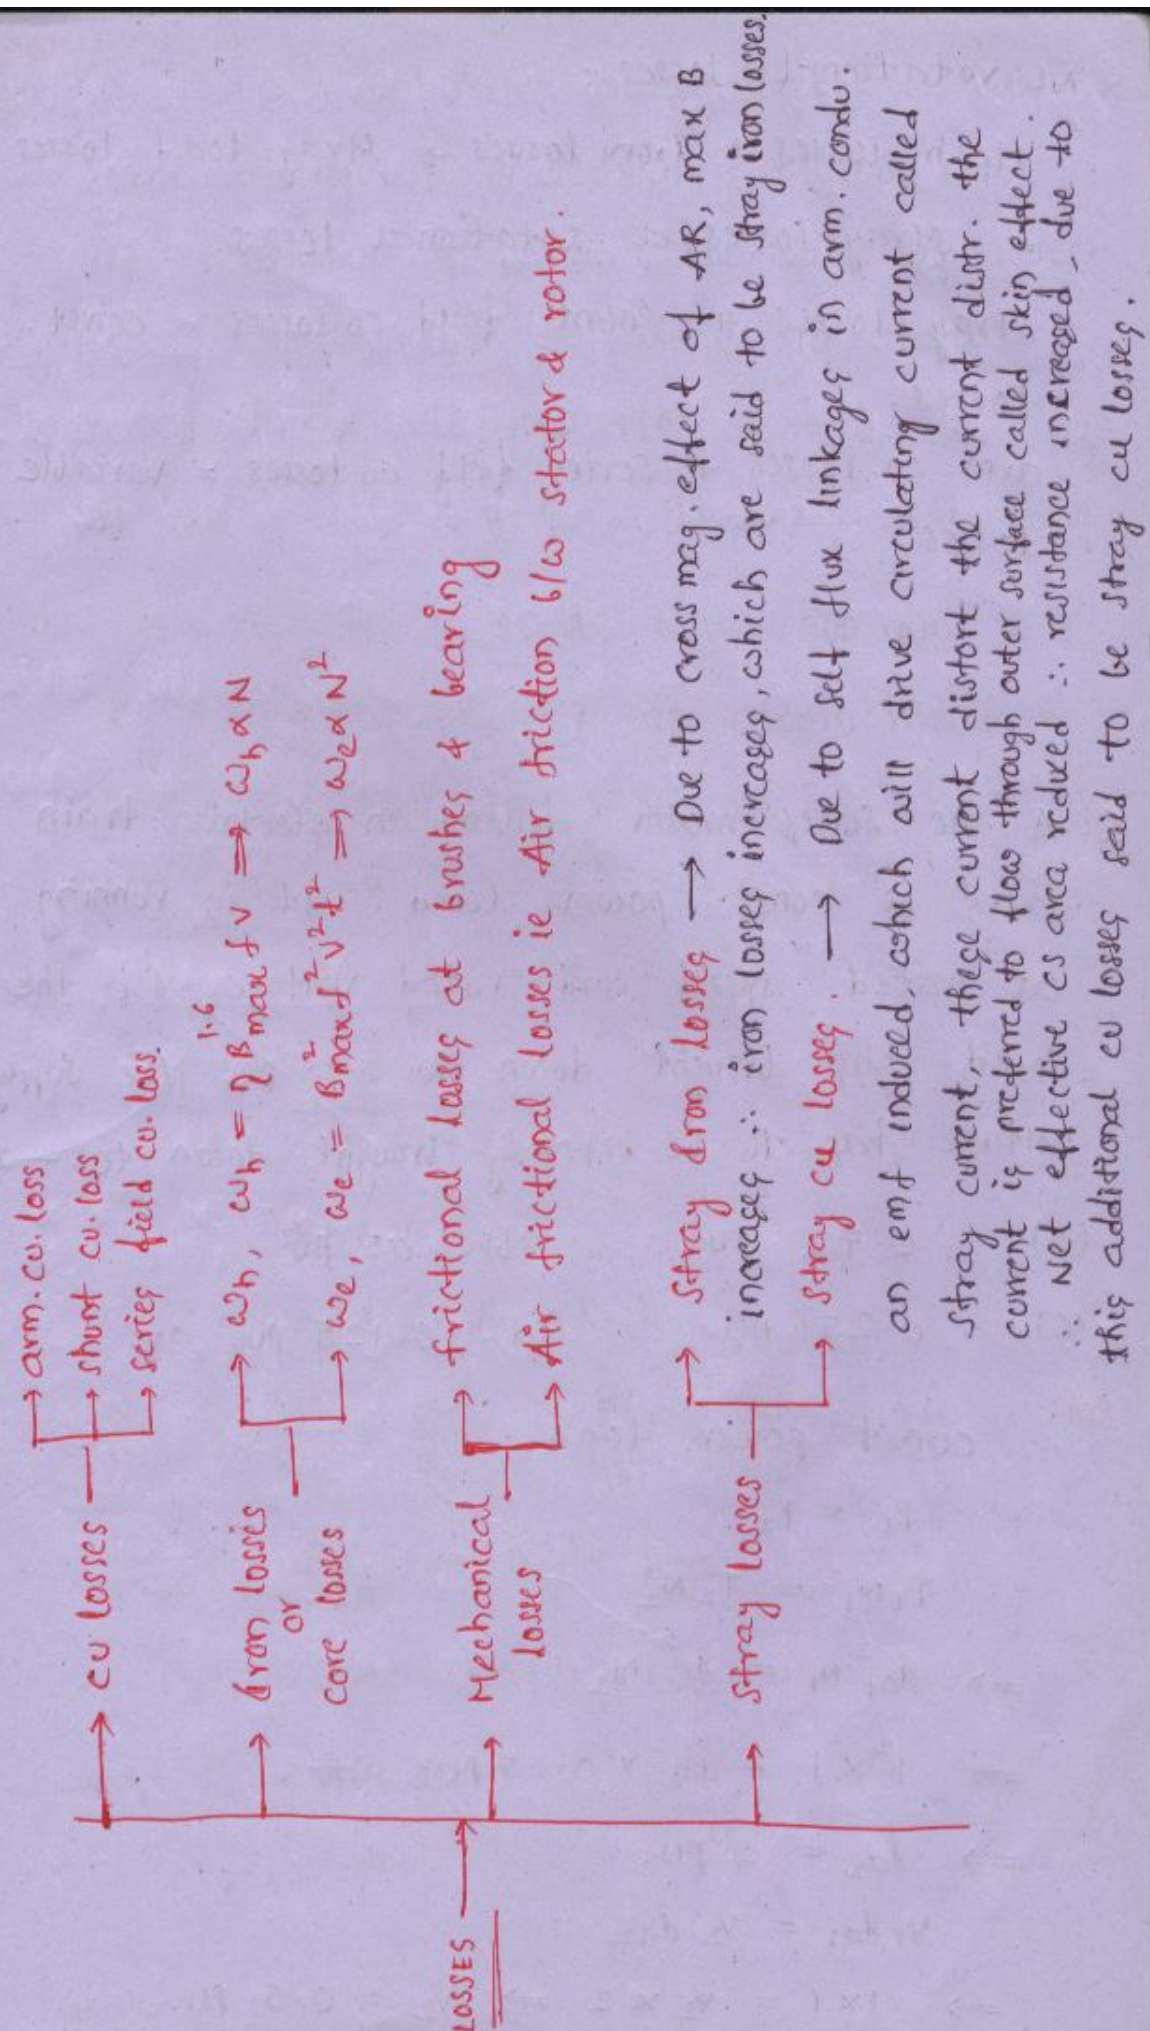 LOSSES
cu losses
arm. cu. loss
shunt cu. loss
series field cu. loss.
Iron losses
or
core losses
ωh, ωh = η Bmax^1.6 f v ⇒ ωh ∝ N
ωe, ωe = Bmax^2 f^2 v^2 t^2 ⇒ ωe ∝ N^2
Mechanical
losses
frictional losses at brushes & bearing
Air frictional losses ie Air friction b/w stator & rotor.
Stray losses
Stray Iron losses → Due to cross mag. effect of AR, max B
increases ∴ iron losses increases, which are said to be stray iron losses.
Stray cu losses. → Due to self flux linkages in arm. condu.
an emf induced, which will drive circulating current called
stray current, these current distort the current distr. the
current is preferred to flow through outer surface called skin effect.
∴ Net effective cs area reduced ∴ resistance increased, due to
this additional cu losses said to be stray cu losses.